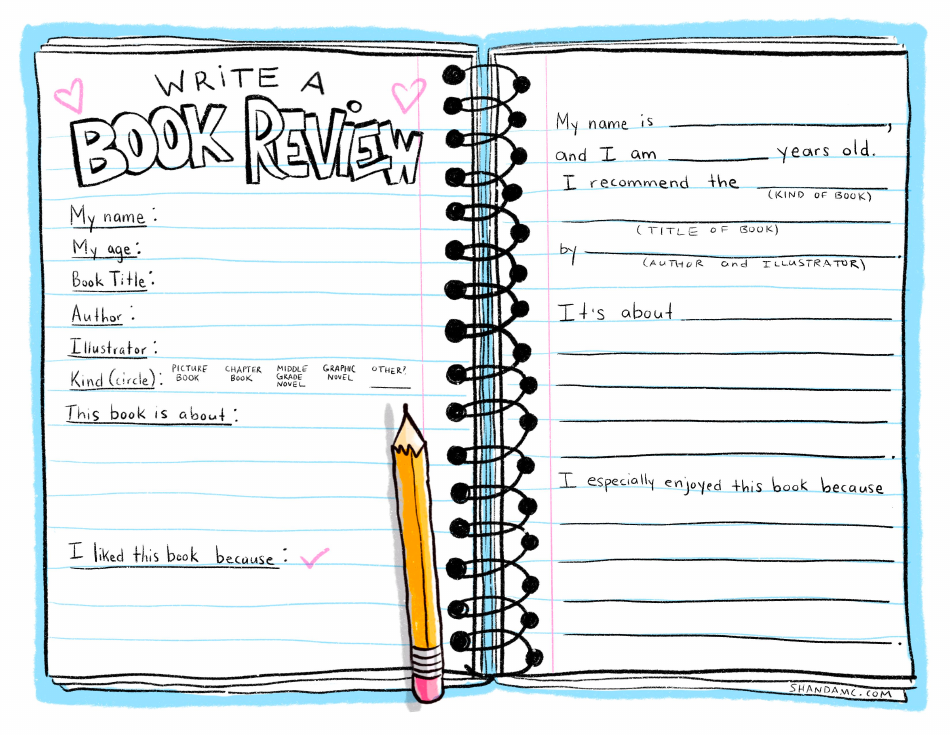 WRiTE A
BOOK REViEW
My name:
My age:
Book Title:
Author:
Illustrator:
Kind (circle): PICTURE BOOK CHAPTER BOOK MIDDLE GRADE NOVEL GRAPHIC NOVEL OTHER?
This book is about:
I liked this book because:
My name is ,
and I am years old.
I recommend the
(KIND OF BOOK)
(TITLE OF BOOK)
by .
(AUTHOR and ILLUSTRATOR)
It's about
.
I especially enjoyed this book because
.
SHANDAMC.COM